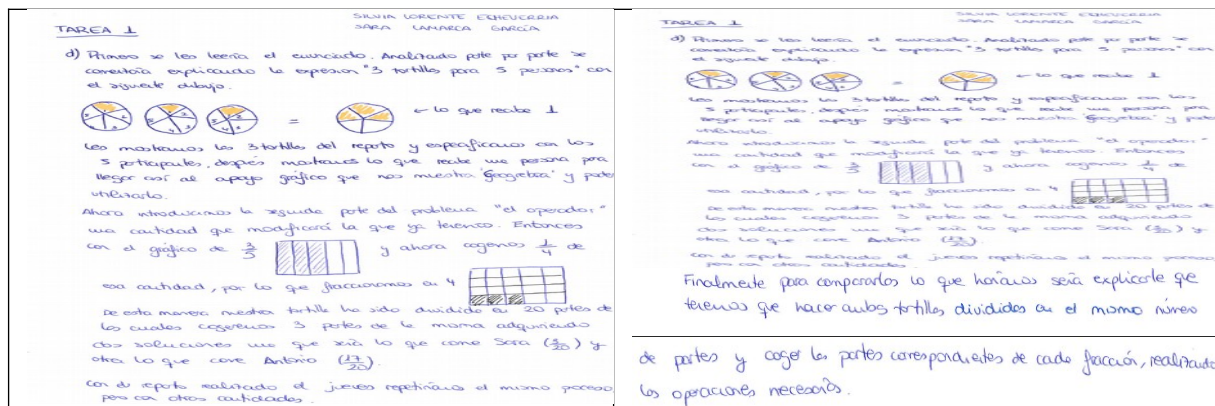 SILVIA LORENTE ECHEVERRIA
SARA LAMARCA GARCÍA
TAREA 1
d) Primero se les leería el enunciado. Analizado parte por parte se
comentaría explicando la expresión "3 tortillas para 5 personas" con
el siguiente dibujo.
= ← lo que recibe 1
Les mostramos las 3 tortillas del reparto y especificamos con los
5 participantes, después mostramos lo que recibe una persona para
llegar así al apoyo gráfico que nos muestra "Geogebra" y poder
utilizarlo.
Ahora introducimos la segunda parte del problema "el operador:"
una cantidad que modificará la que ya tenemos. Entonces
con el gráfico de 3/5 y ahora cogemos 1/4 de
esa cantidad, por lo que fraccionamos en 4
De esta manera nuestra tortilla ha sido dividida en 20 partes de
las cuales cogeremos 3 partes de la misma adquiriendo
dos soluciones una que sería lo que come Sara (3/20) y
otra lo que come Antonio (17/20).
Con el reparto realizado el jueves repetiríamos el mismo proceso
pero con otras cantidades.
SILVIA LORENTE ECHEVERRIA
SARA LAMARCA GARCÍA
TAREA 1
d) Primero se les leería el enunciado. Analizado parte por parte se
comentaría explicando la expresión "3 tortillas para 5 personas" con
el siguiente dibujo.
= ← lo que recibe 1
Les mostramos las 3 tortillas del reparto y especificamos con los
5 participantes, después mostramos lo que recibe una persona para
llegar así al apoyo gráfico que nos muestra "Geogebra" y poder
utilizarlo.
Ahora introducimos la segunda parte del problema "el operador:"
una cantidad que modificará la que ya tenemos. Entonces
con el gráfico de 3/5 y ahora cogemos 1/4 de
esa cantidad, por lo que fraccionamos en 4
De esta manera nuestra tortilla ha sido dividida en 20 partes de
las cuales cogeremos 3 partes de la misma adquiriendo
dos soluciones una que sería lo que come Sara (3/20) y
otra lo que come Antonio (17/20).
Con el reparto realizado el jueves repetiríamos el mismo proceso
pero con otras cantidades.
Finalmente para compararlos lo que haríamos sería explicarle que
tenemos que hacer ambas tortillas divididas en el mismo número
de partes y coger las partes correspondientes de cada fracción, realizando
las operaciones necesarias.